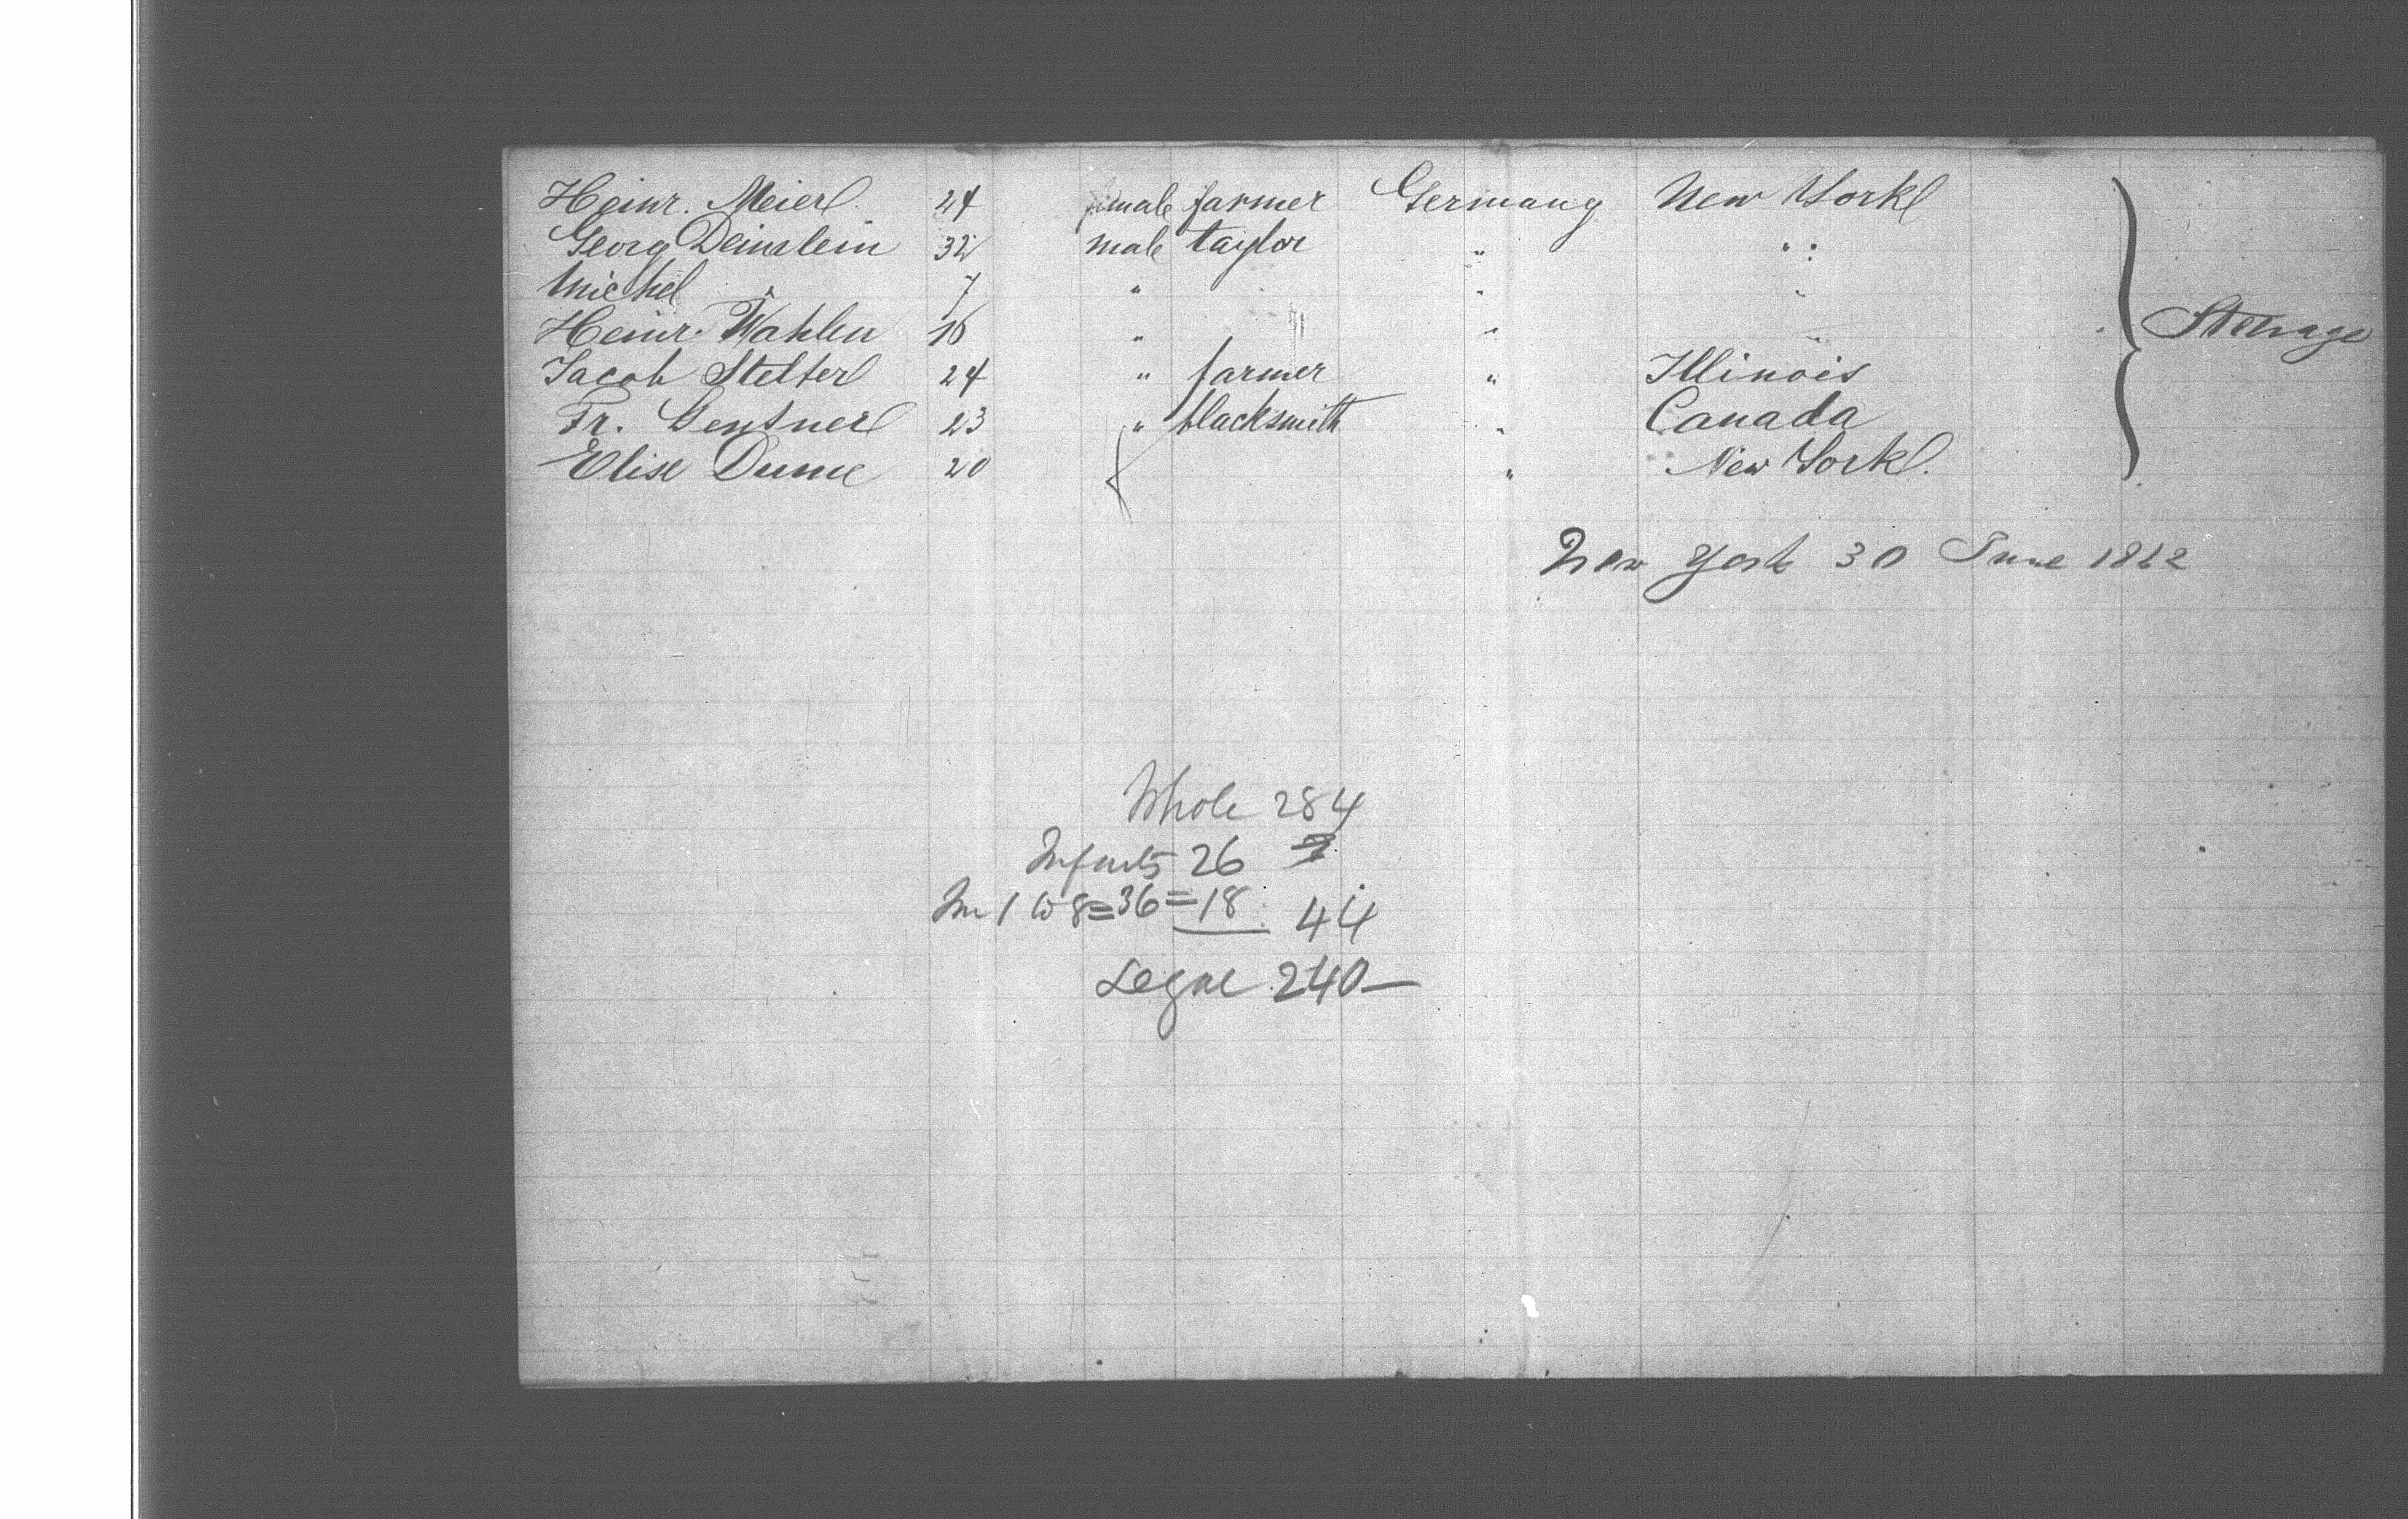 Heinr. Meier 24 female farmer Germany New York
Georg Deinlein 32 male taylor " "
Michel " 7 " " "
Heinr. Wahlen 16 " " "
Jacob Stelter 24 " farmer " Illinois
Fr. Gentner 23 " blacksmith " Canada
Elise Dume 20 " New York.
Steerage
New York 30 June 1862
Whole 284
Infants 26
1 to 8=36=18 44
Legal 240—